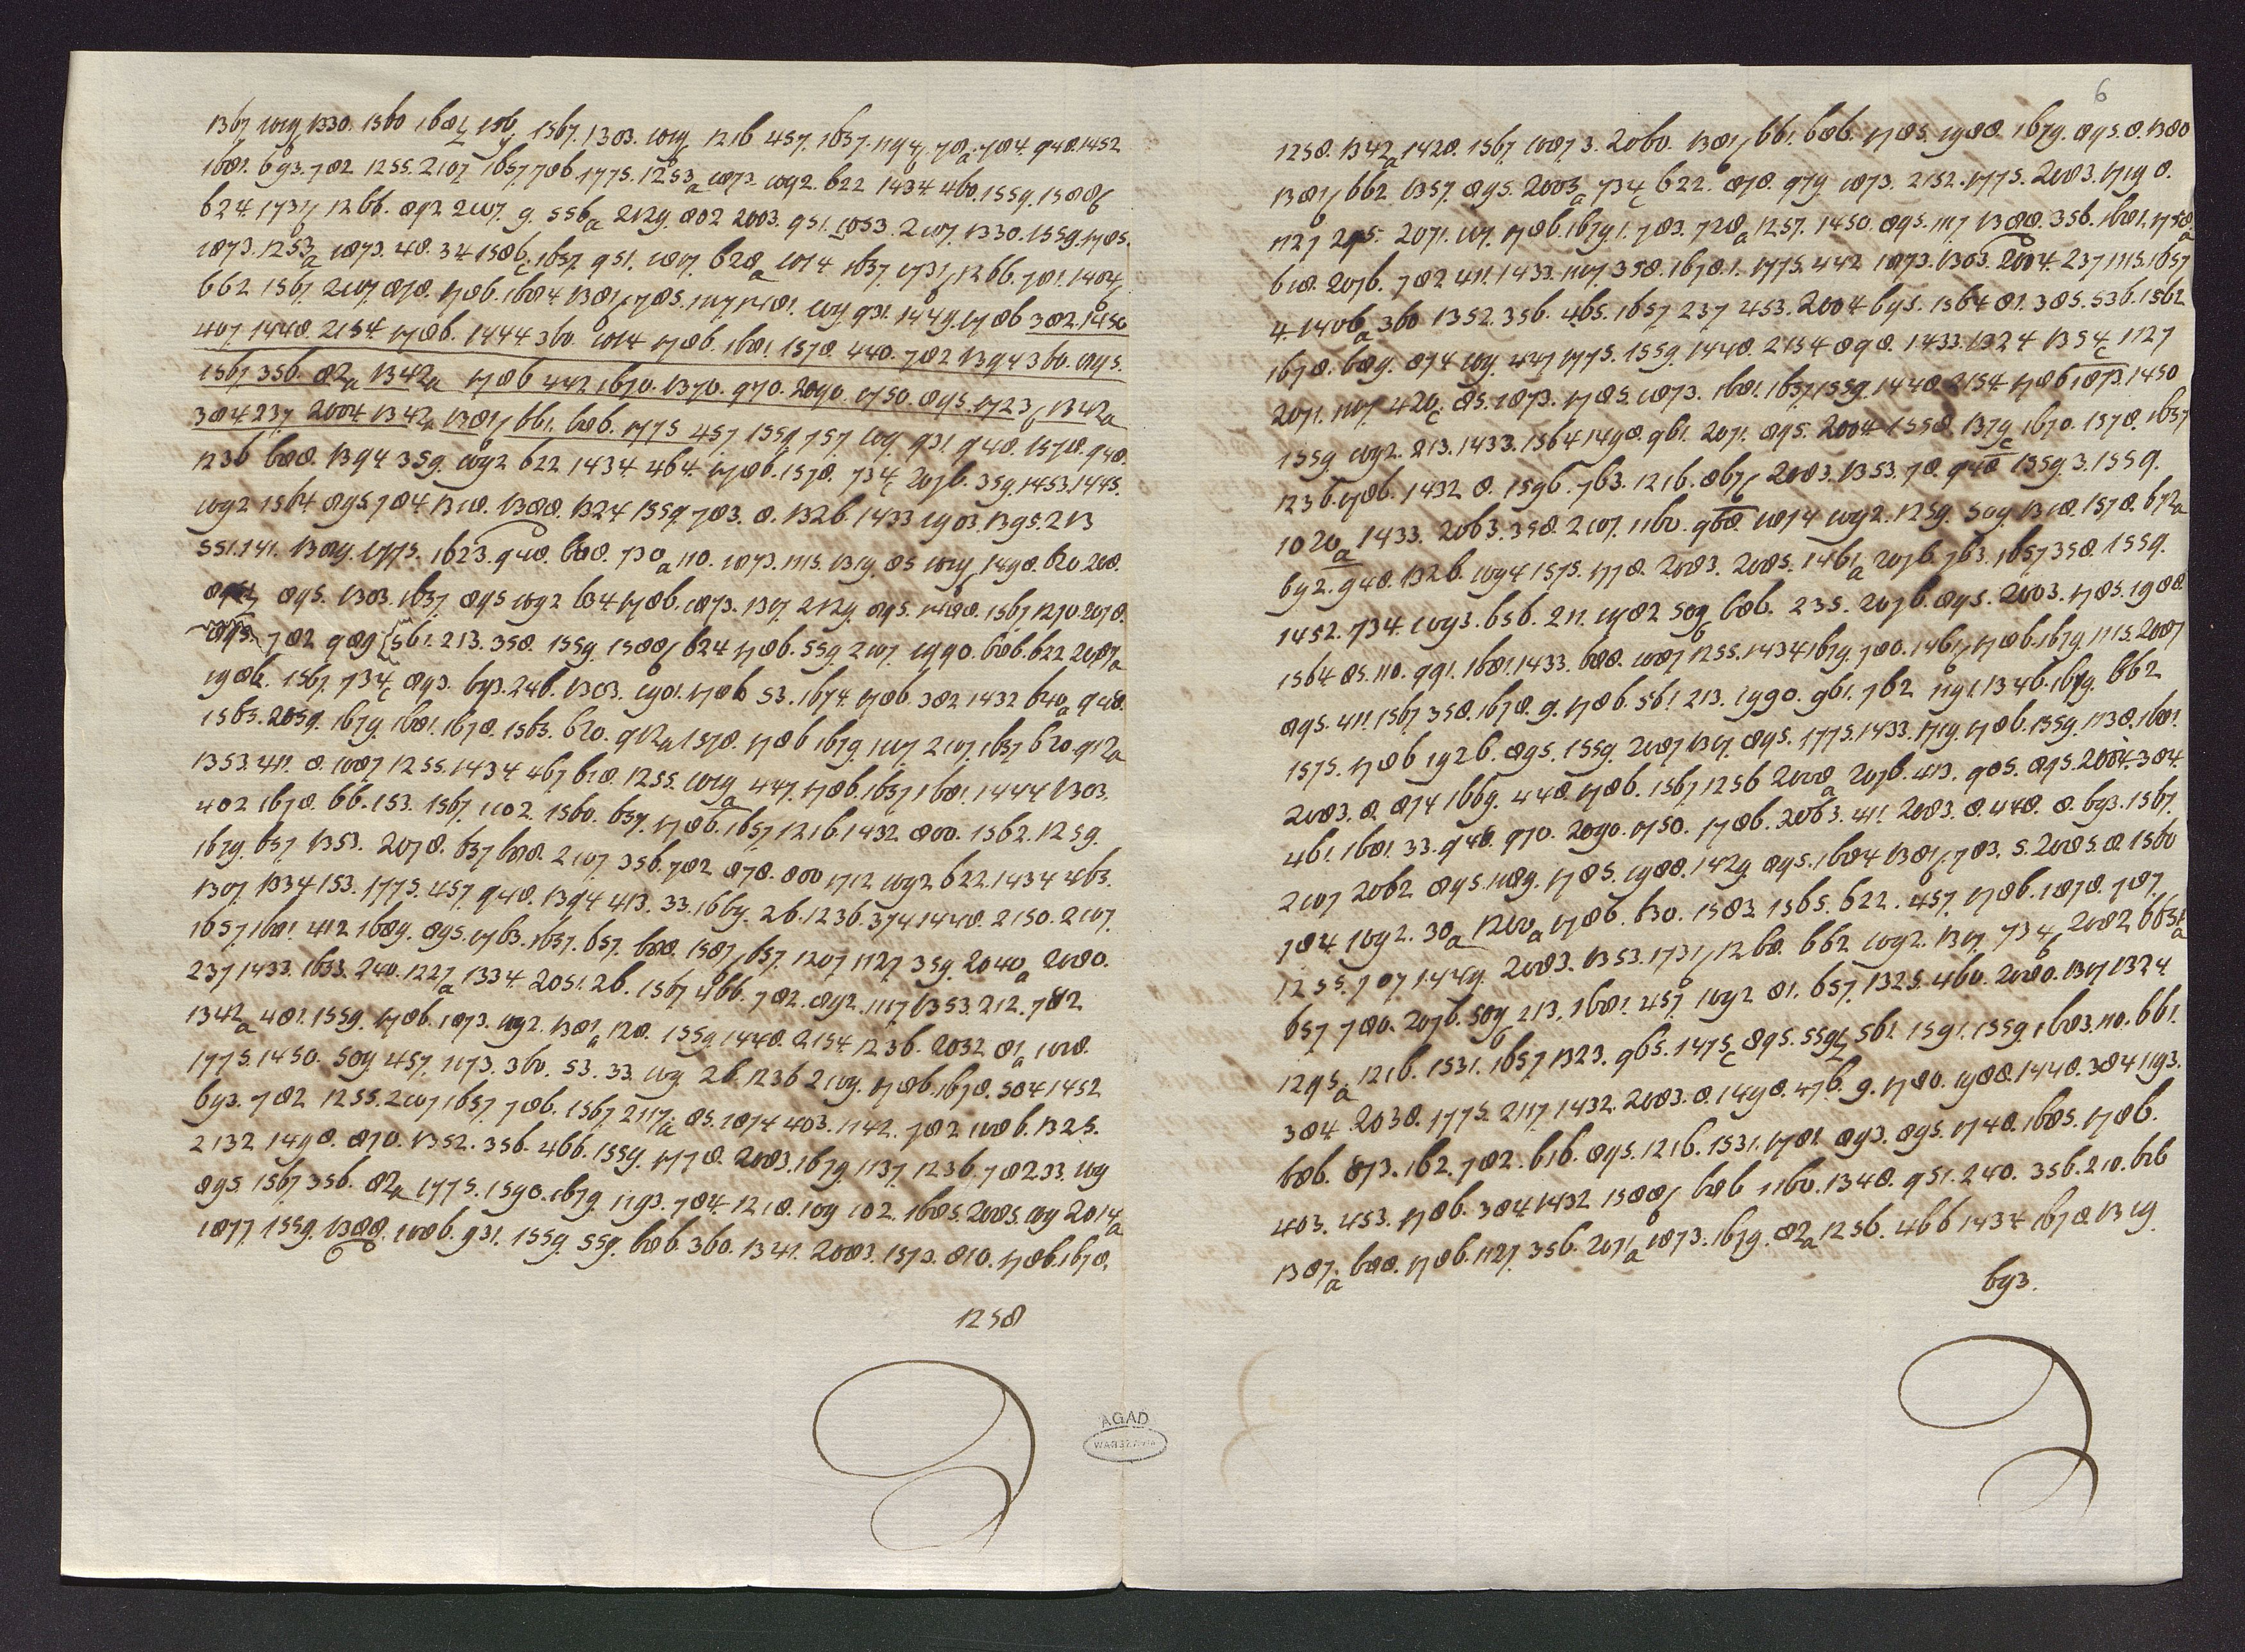 1330. 1360 1567. 1303. 1216 457. 1657. 784. 948. 1452
1681. 693. 782 1255. 2107 1657. 786. 1775. 1253a 1873. 1092. 622 1434 460. 1559. 1508b
624. 1731b 1266. 892 2107. 9. 556a 2129. 802 2003. 951. 1053. 2107. 1330. 1559. 1785.
1873. 1253a 1873. 48. 34 1586c. 1657 951. 1017. 628a 1014 1637. 1731b 1266. 781. 1404b
662 1567 2107. 878. 1786. 1684 1381b 785. 1117 931. 1449. 1786 382. 1450
407 1448. 2154. 1786. 1444 360. 1014 1786. 1681. 1578. 440. 782 1394 360. 1095.
1567 356. 82a 1342a 1786 442. 1670. 1370. 970. 2090. 1750. 895. 1723b 1342a
384. 237 2004. 1342a 1381b 661. 686. 1775 457. 1559 757. 109. 931 948. 1578. 948.
1236 688. 1394 359. 1092 622 1434. 464. 1786. 1578. 734c 2076. 359. 1453. 1445.
1092 1564 895. 784 1318. 1388. 1324 1559. 783. 8. 1326. 1433 1903. 1395. 213
551. 141. 1389. 1775. 1623. 948. 688. 730a 110. 1873. 1115. 1319. 85 1498. 620 208.
895. 1303. 1637 895 1092 634 1786. 1873. 1317. 2129. 895. 1567 1270. 2078.
782 989 561. 213. 358. 1559. 1508b 624 1786. 559. 2107. 1990. 686. 622 2087a
1986. 1567. 734c 893. 693. 246. 1303. 1901. 1786 53. 1674. 1786. 382 1432 640a 948.
1565. 2059. 1679. 1681. 1678. 1565. 620. 912a 1578. 1786 1679. 1117 2107. 1657 620. 912a
1353. 411. 8. 1087 1255. 1434 467 618. 1255. 1019a 447. 1786. 1657 1681. 1444 1303.
402 1678. 66. 153. 1567. 1102. 1560. 657. 1786. 1657. 1216. 1432. 800. 1562. 1259.
1679. 657. 1353. 2078. 657 688. 2107 356. 782 878. 800 1712 1092 622. 1434 463.
1307. 1334 153. 1775. 457. 948. 1394 413. 33. 1669. 26. 1236. 374 1448. 2150. 2107.
1657. 1681. 412 1689. 895. 1763. 1637. 657. 688. 1587 657. 1207 1127 359. 2040a 2080.
237 1433. 1633. 240. 1227a 1334 2051. 26. 1567 466. 782. 892. 1117 1353. 212. 782
1342a 481. 1559. 1786. 1873. 1092. 1381a 128. 1559 1448. 2154. 1236. 2032 81a
1775. 1450. 509 457. 1173. 360. 53. 33. 109 26. 1236 2109. 1786. 1678. 504 1452
693. 782 1255. 2107 1657. 786. 1567. 2117a 85. 1874 403. 1142. 782 1086. 1325.
2132 1498. 870. 1352. 356. 466. 1559. 1778. 2083. 1679. 1137. 1236. 782 33. 109
895 1567 356. 82a 1775. 1590. 1679. 1193. 784. 1218. 109 102. 1685. 2085. 109 2014a
1877. 1559. 1388. 1086. 931. 1559. 559. 686. 360. 1341. 2083. 1573. 810. 1786. 1678.
1258
6
1258. 1342a 1428. 1567 1087 3. 2060. 1381b 661. 686. 1785. 1988. 1679. 895. 8. 1380
1381b 662 1357. 895. 2003a 734c 622. 878. 979 1873. 2152. 1775. 2083. 1719 8.
1127 2071. 107. 1786. 1679 1. 783. 728a 1257. 1450. 895. 1117 1388. 356. 1681. 1758a
618. 2076. 782 411. 1433. 1107. 358. 1678. 1. 1775. 442 1873. 1303. 2004. 237 1115. 1657
4. 1406a 360 1352. 356. 465. 1657 237 453. 2004 695. 1564 81. 385. 536. 1562
1678. 689. 874 109. 447 1775. 1559. 1448. 2154 898. 1433. 1324 1354c 1127
2071. 1107 420c 85. 1873. 1785. 1873. 1681. 1657. 1559. 1448. 2154. 1786 1873. 1450
1559 1092. 213. 1433. 1564 1498. 961. 2071. 895. 2004 1558. 1379c 1670. 1578. 1657
1236. 1786. 1432 8. 1596. 763. 1216. 867b 2083. 1353. 78. 948 1559 3. 1559.
1020a 1433. 2063. 358. 2107. 1160. 968. 1074 1092. 1259. 509. 1318. 1578. 672a
692. 948. 1326. 1094 1575. 1778. 2083. 2085. 1461a 2076. 763. 1657 358. 1559.
1452. 734. 1093. 656. 211. 1982 509b 686. 235. 2076. 895. 2003. 1785. 1988.
1564 85. 110. 991. 1681. 1433. 688. 1087 1255. 1434 1679. 780. 1461b 1786. 1679. 1115. 2087
895. 411. 1567 358. 1678. 9. 1786. 561 213. 1990. 961. 762 1191. 1346. 1679. 662
1575. 1786 1926. 895. 1559. 2087 1317. 895. 1775. 1433. 1719. 1786. 1359. 1138. 1681.
2083. 8. 874 1669. 448. 1786. 1567. 1256 2008a 2076. 413. 905. 895. 2004. 384.
461. 1681. 33. 948. 970. 2090. 1750. 1786. 2063. 411. 2083. 8. 448. 8. 693. 1567.
2107 2062 895. 1189. 1785. 1988. 1429. 895. 1684 1381b. 783. 5. 2085. 8. 1560
784. 1092. 30a 1200a 1786. 630. 1582 1565. 622. 457. 1786. 1878. 787.
1255. 707 1449. 2083. 1353. 1731b 1268. 662 1092. 1317. 734b 2082 663a
657 780. 2076. 509b 213. 1681. 457 1092 81. 657. 1325. 460. 2080. 1317 1324.
1295a 1216. 1531. 1657 1323. 965. 1475c 895. 559b 561 1591. 1559 1683. 110. 661.
384. 2038. 1775. 2117. 1432. 2083. 8. 1498. 476. 9. 1780. 1988. 1448. 384 1193.
686. 873. 162. 782. 616. 895. 1216. 1531. 1781 893. 895. 1748. 1685. 1786.
403. 453. 1786. 384 1432 1508b 686 1160. 1348. 951. 240. 356. 210. 626
1387a 688. 1786. 1127. 356. 2071a 1873. 1679. 82a 1256. 466 1434 1678 1319
693.
AGAD
WARSZAWA